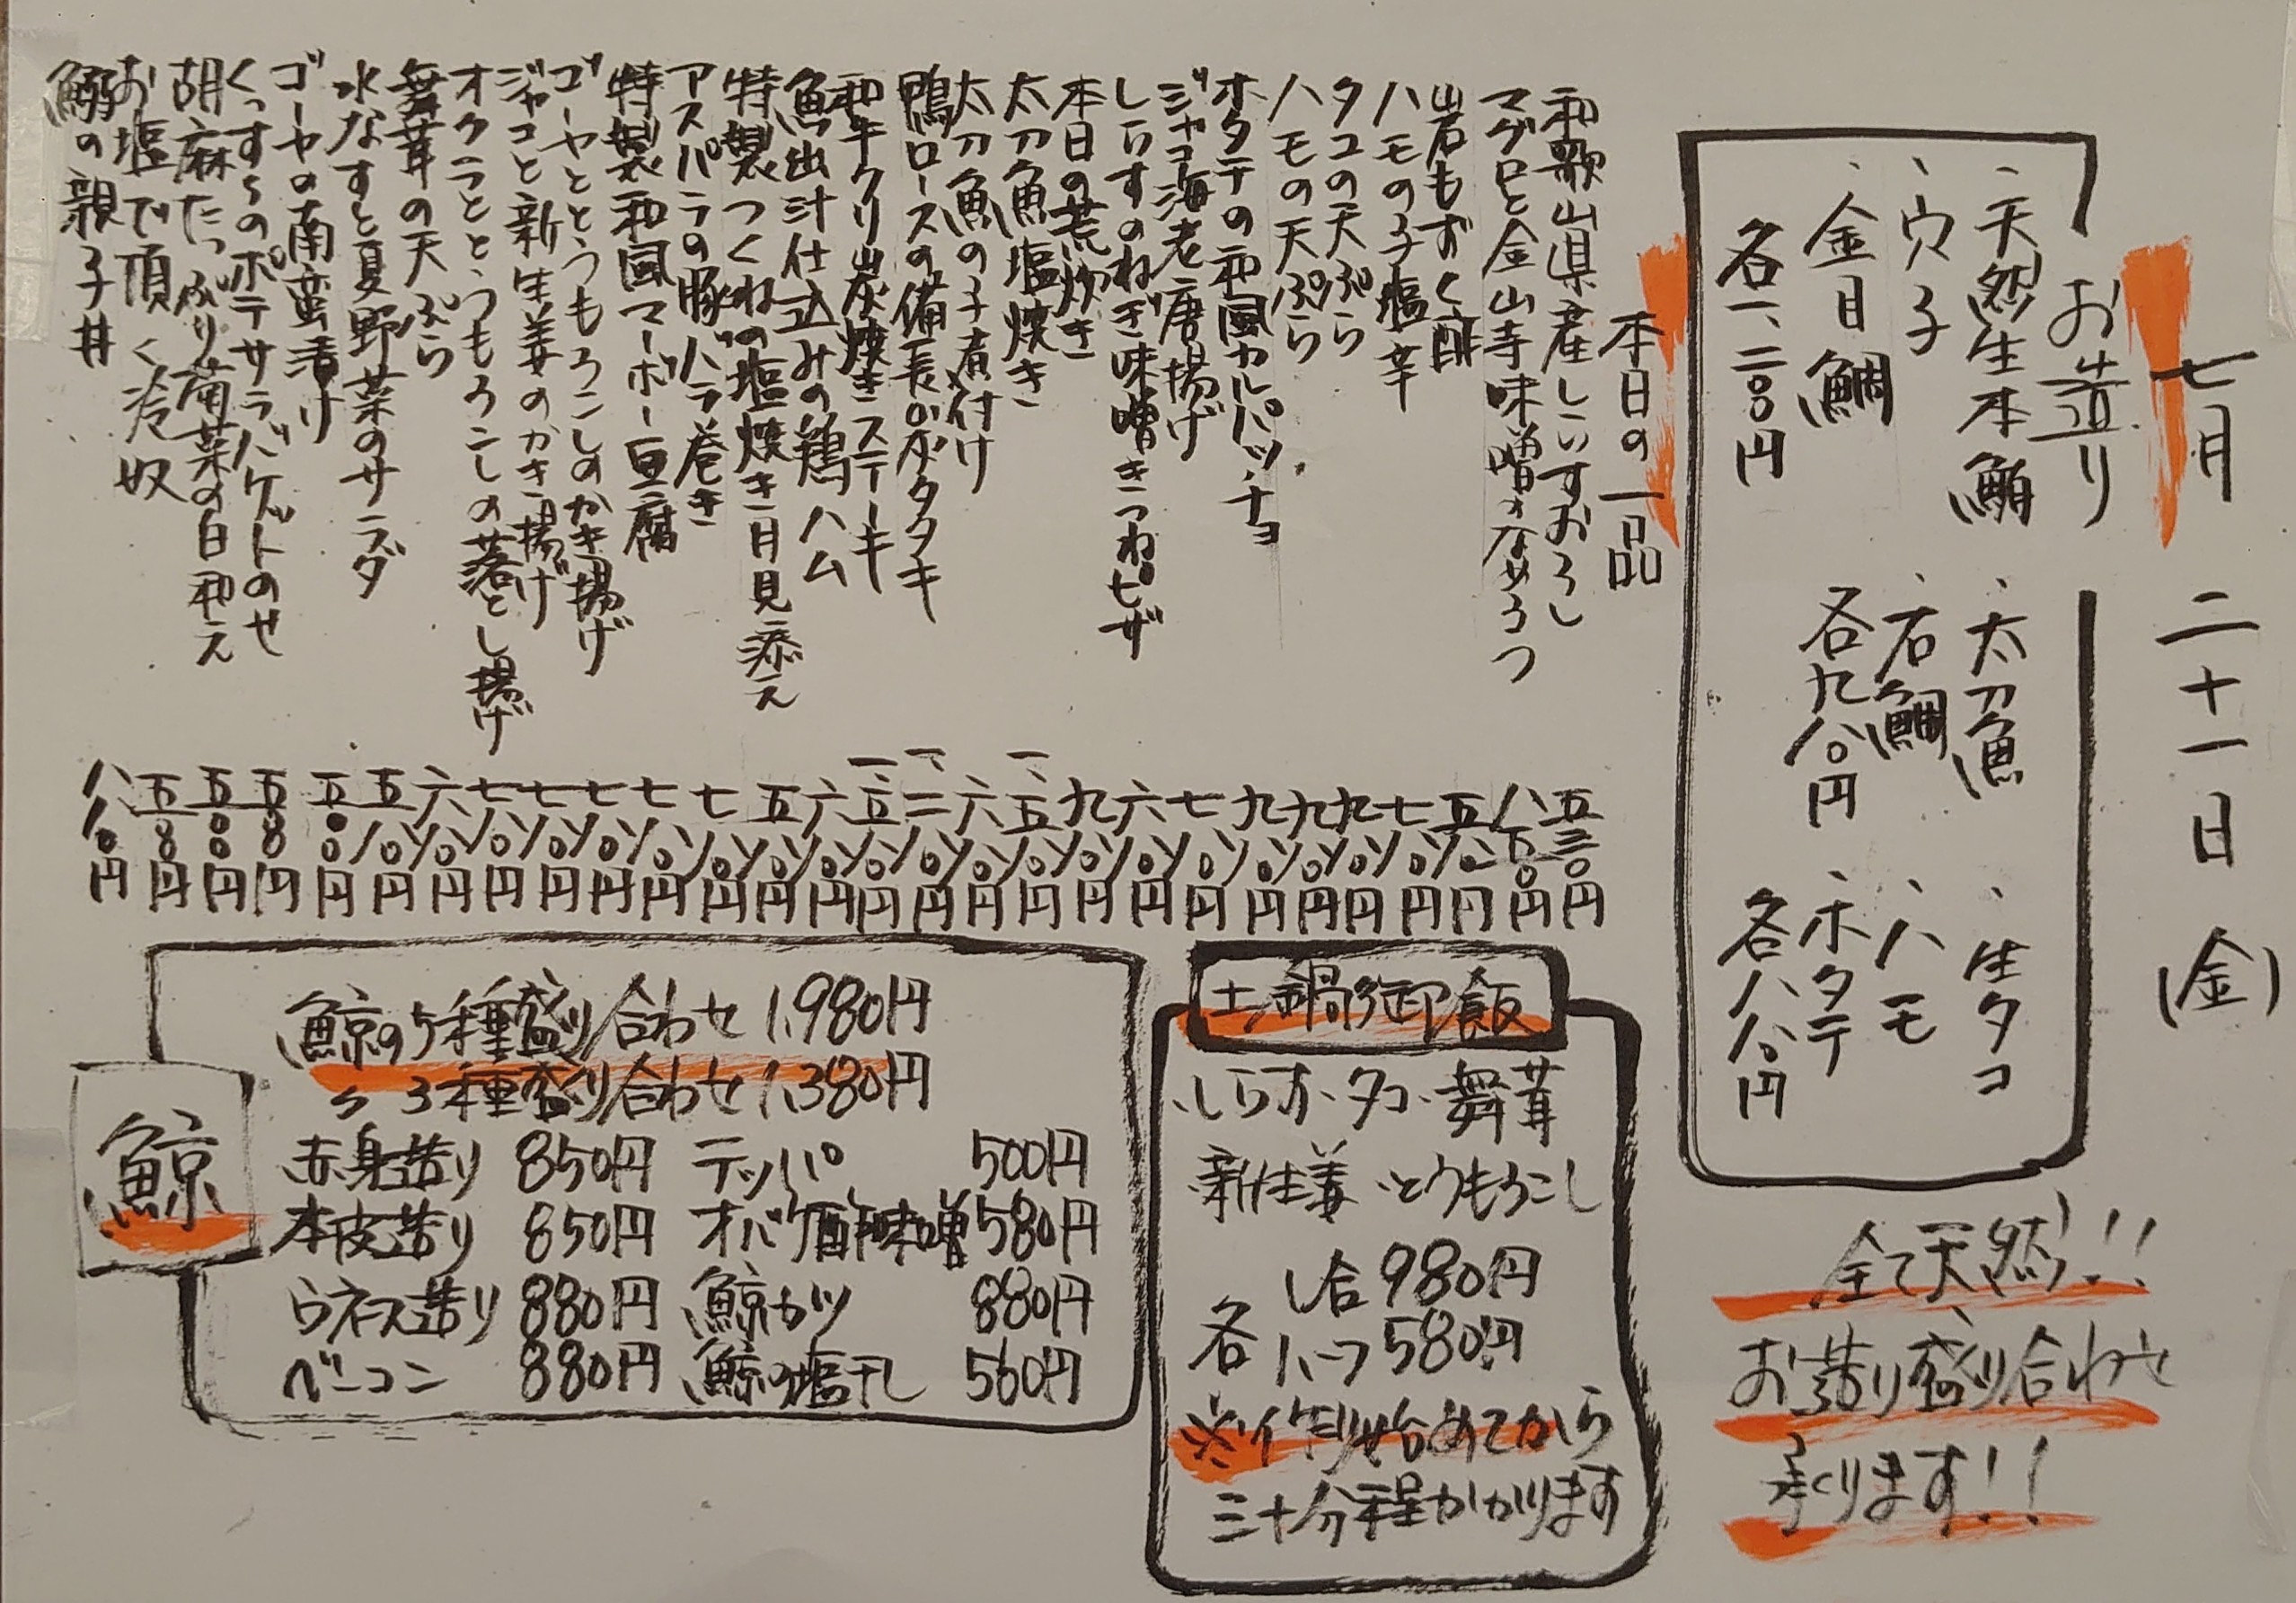 七月二十一日(金)
お造り
、天然生本鮪
、穴子
、金目鯛
各一、二〇〇円
、太刀魚
、石鯛
各九八〇円
、生タコ
、ハモ
、ホタテ
各八八〇円
全て天然!!
お造り盛り合わせ
承ります!!
本日の一品
和歌山県産しらすおろし 五三〇円
マグロと金山寺味噌のなめろう 八五〇円
岩もずく酢 五八〇円
ハモの子塩辛 七八〇円
タコの天ぷら 九八〇円
ハモの天ぷら 九八〇円
ホタテの和風カルパッチョ 九八〇円
ジャコ海老唐揚げ 七八〇円
しらすのねぎ味噌きつねピザ 六八〇円
本日の荒炊き 九八〇円
太刀魚塩焼き 一、五八〇円
太刀魚の子煮付け 六八〇円
鴨ロースの備長炭タタキ 一、二八〇円
和牛クリ炭焼きステーキ 一、五八〇円
魚出汁仕込みの鶏ハム 六八〇円
特製つくねの塩焼き月見添え 五八〇円
アスパラの豚バラ巻き 七八〇円
特製和風マーボー豆腐 七八〇円
ゴーヤととうもろこしのかき揚げ 七八〇円
ジャコと新生姜のかき揚げ 七八〇円
オクラととうもろこしの落とし揚げ 七八〇円
舞茸の天ぷら 六八〇円
水なすと夏野菜のサラダ 五八〇円
ゴーヤの南蛮漬け 五〇〇円
くっすらのポテサラバゲットのせ 五八〇円
胡麻たっぷり菊菜の白和え 五〇〇円
お塩で頂く冷奴 五八〇円
鰯の親子丼 八八〇円
土鍋御飯
、しらす、タコ、舞茸
新生姜、とうもろこし
各
一合 980円
ハーフ 580円
※作り始めてから
三十分程かかります
鯨
鯨の5種盛り合わせ 1,980円
〃 3種盛り合わせ 1,380円
赤身造り 850円 テッパ 500円
本皮造り 850円 オバケ酢味噌 580円
ウネス造り 880円 鯨カツ 880円
ベーコン 880円 鯨の塩干し 560円